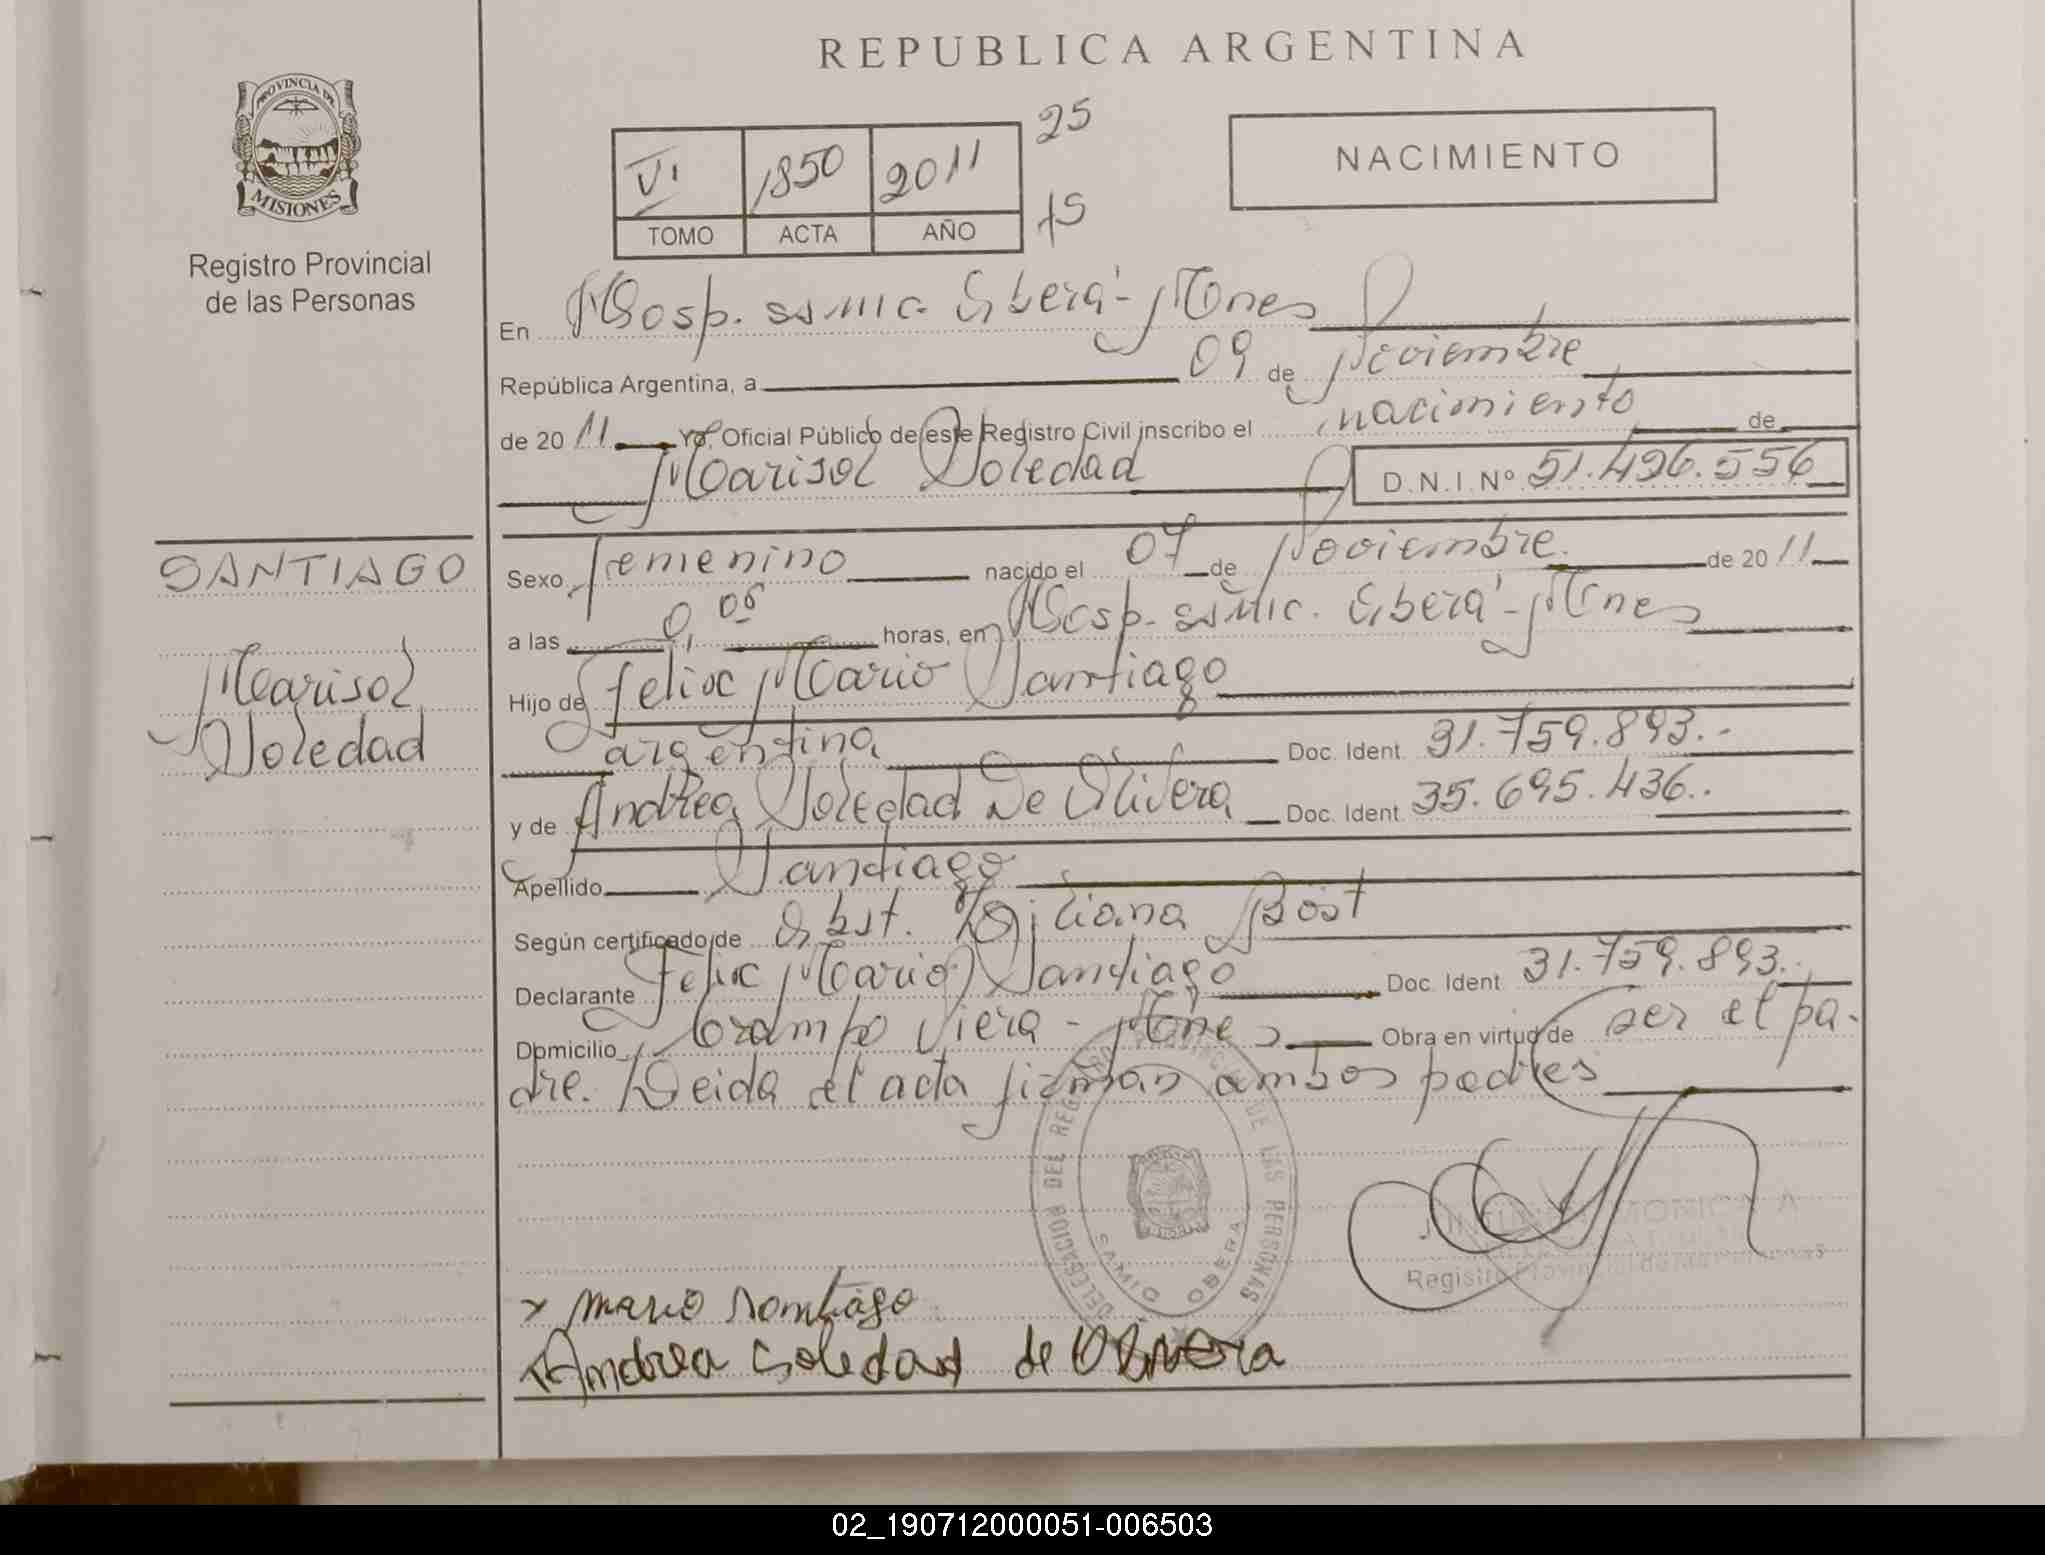 REPUBLICA ARGENTINA
PROVINCIA DE
MISIONES
Registro Provincial
de las Personas
VI 1850 2011
TOMO ACTA AÑO
25
15
NACIMIENTO
En Hosp. SSMIC. Oberá-Mnes
República Argentina, a 09 de Noviembre
de 2011 Yo, Oficial Público de este Registro Civil inscribo el nacimiento de
Marisol Soledad D.N.I.Nº 51.496.556
SANTIAGO
Marisol
Soledad
Sexo femenino nacido el 07 de Noviembre de 2011
a las 0,05 horas, en Hosp. SSMIC. Oberá-Mnes
Hijo de Felix Mario Santiago
argentina Doc. Ident. 31.759.893.-
y de Andrea Soledad De Olivera Doc. Ident. 35.695.436..
Apellido Santiago
Según certificado de Obst. Liliana Bost
Declarante Felix Mario Santiago Doc. Ident 31.759.893..
Domicilio Crampo Viera - Mnes Obra en virtud de ser el pa-
dre. Leida el acta firman ambos padres
DELEGACION DEL REGISTRO PROVINCIAL DE LAS PERSONAS
SAMIC OBERA
MONICA A
Registro Provincial de las Personas
x mario Santiago
x Andrea Soledad de Olivera
02_190712000051-006503